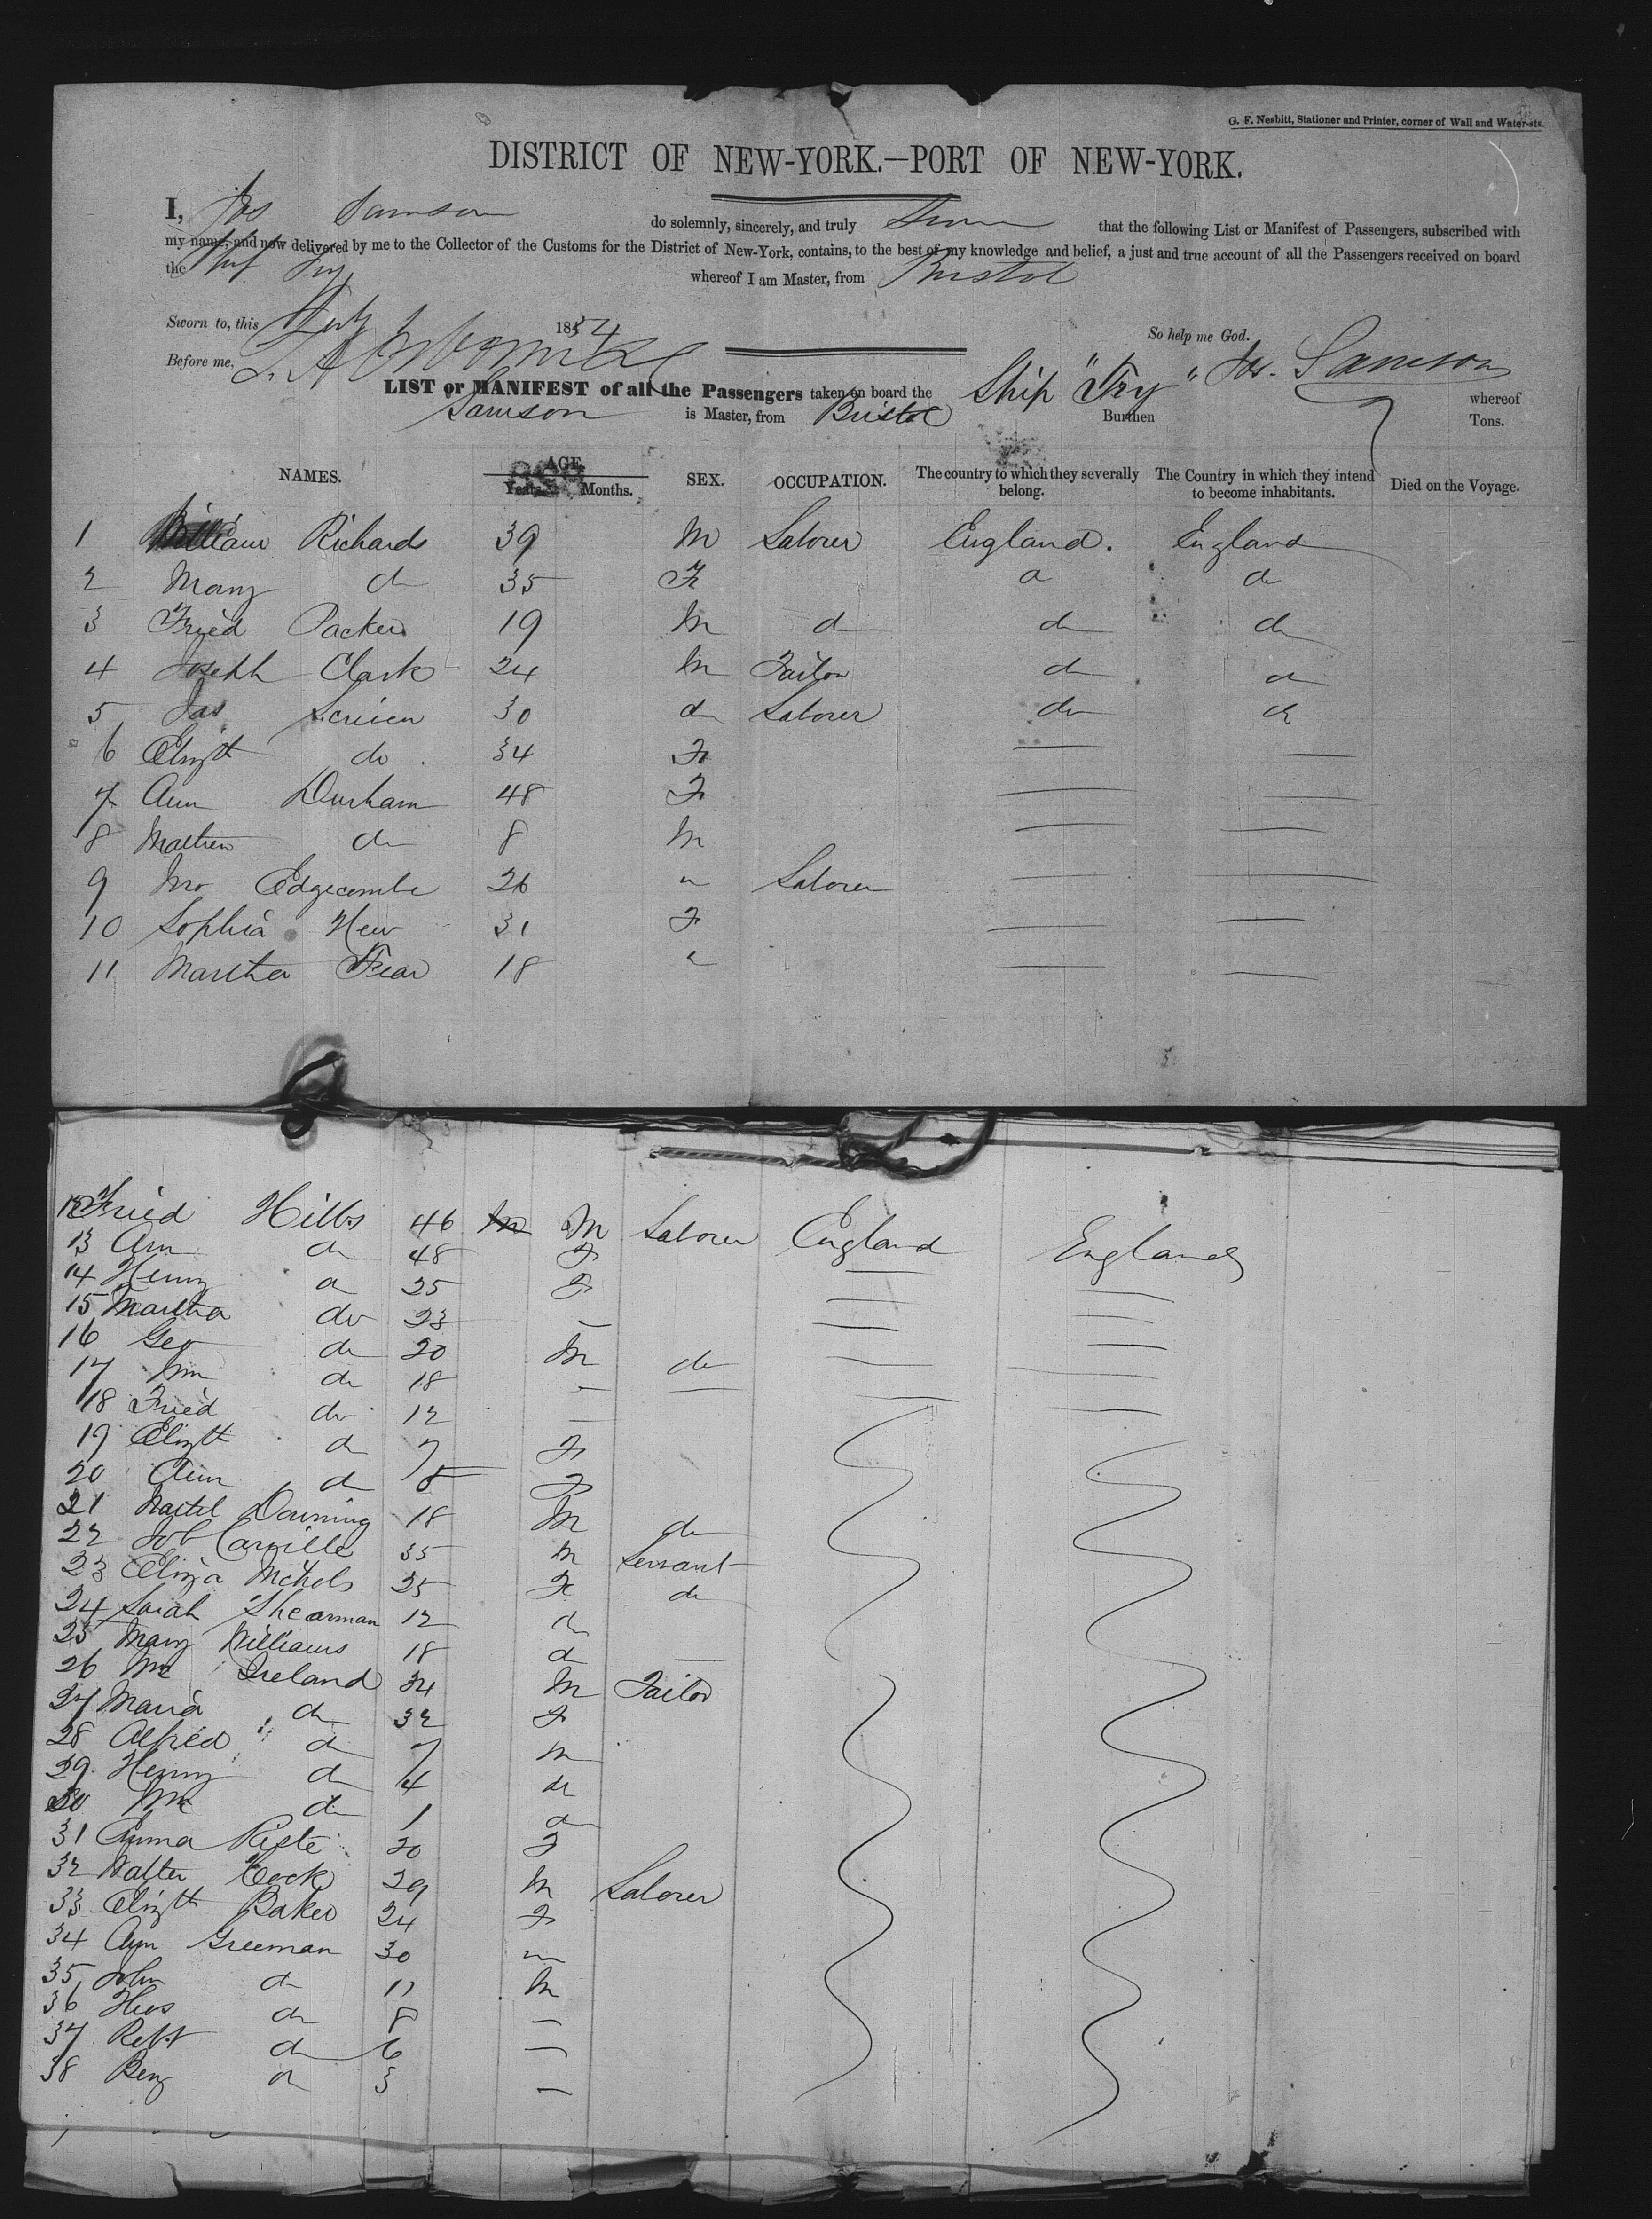 G. F. Nesbitt, Stationer and Printer, corner of Wall and Water-sts.
DISTRICT OF NEW-YORK.—PORT OF NEW-YORK.
I, Jas Samson do solemnly, sincerely, and truly Swear that the following List or Manifest of Passengers, subscribed with
my name, and now delivered by me to the Collector of the Customs for the District of New-York, contains, to the best of my knowledge and belief, a just and true account of all the Passengers received on board
the Ship Try whereof I am Master, from Bristol
Sworn to, this 1854 So help me God.
Before me, Jas. Samson
LIST or MANIFEST of all the Passengers taken on board the Ship "Try" whereof
Samson is Master, from Bristol Burthen Tons.
NAMES. AGE. Years. Months. SEX. OCCUPATION. The country to which they severally belong. The Country in which they intend to become inhabitants. Died on the Voyage.
1 William Richards 39 M Laborer England. England
2 Mary do 35 F do do
3 Fried Packer 19 M do do do
4 Joseph Clark 24 M Tailor do do
5 Jas Scriven 30 do Laborer do do
6 Elizth do 34 F — —
7 Ann Durham 48 F — —
8 Mathew do 8 M — —
9 Jno Edgecombe 26 " Laborer — —
10 Sophia New 31 F — —
11 Martha Fear 18 " — —
12 Fried Hills 46 M Laborer England England
13 Ann do 48 F — —
14 Henry do 25 F — —
15 Martha do 23 — — —
16 Geo do 20 M do — —
17 Wm do 18 — — — —
18 Fried do 12 —
19 Elizth do 7 F
20 Ann do 5 F
21 Downing 18 M do
22 Job Carville 35 M Servant
23 Eliza Nichols 25 F do
24 Sarah Shearman 12 do
25 Mary Williams 18 do —
26 Wm Ireland 34 M Tailor
27 Maria do 32 F
28 Alfred do 7 M
29 Henry do 4 do
30 Wm do 1 do
31 Emma 20 F
32 Walter Cock 29 M Laborer
33 Elizth Baker 24 F
34 Ann Greeman 30 "
35 John do 11 M
36 Thos do 8 —
37 Robt do 6 —
38 Benj do 3 —